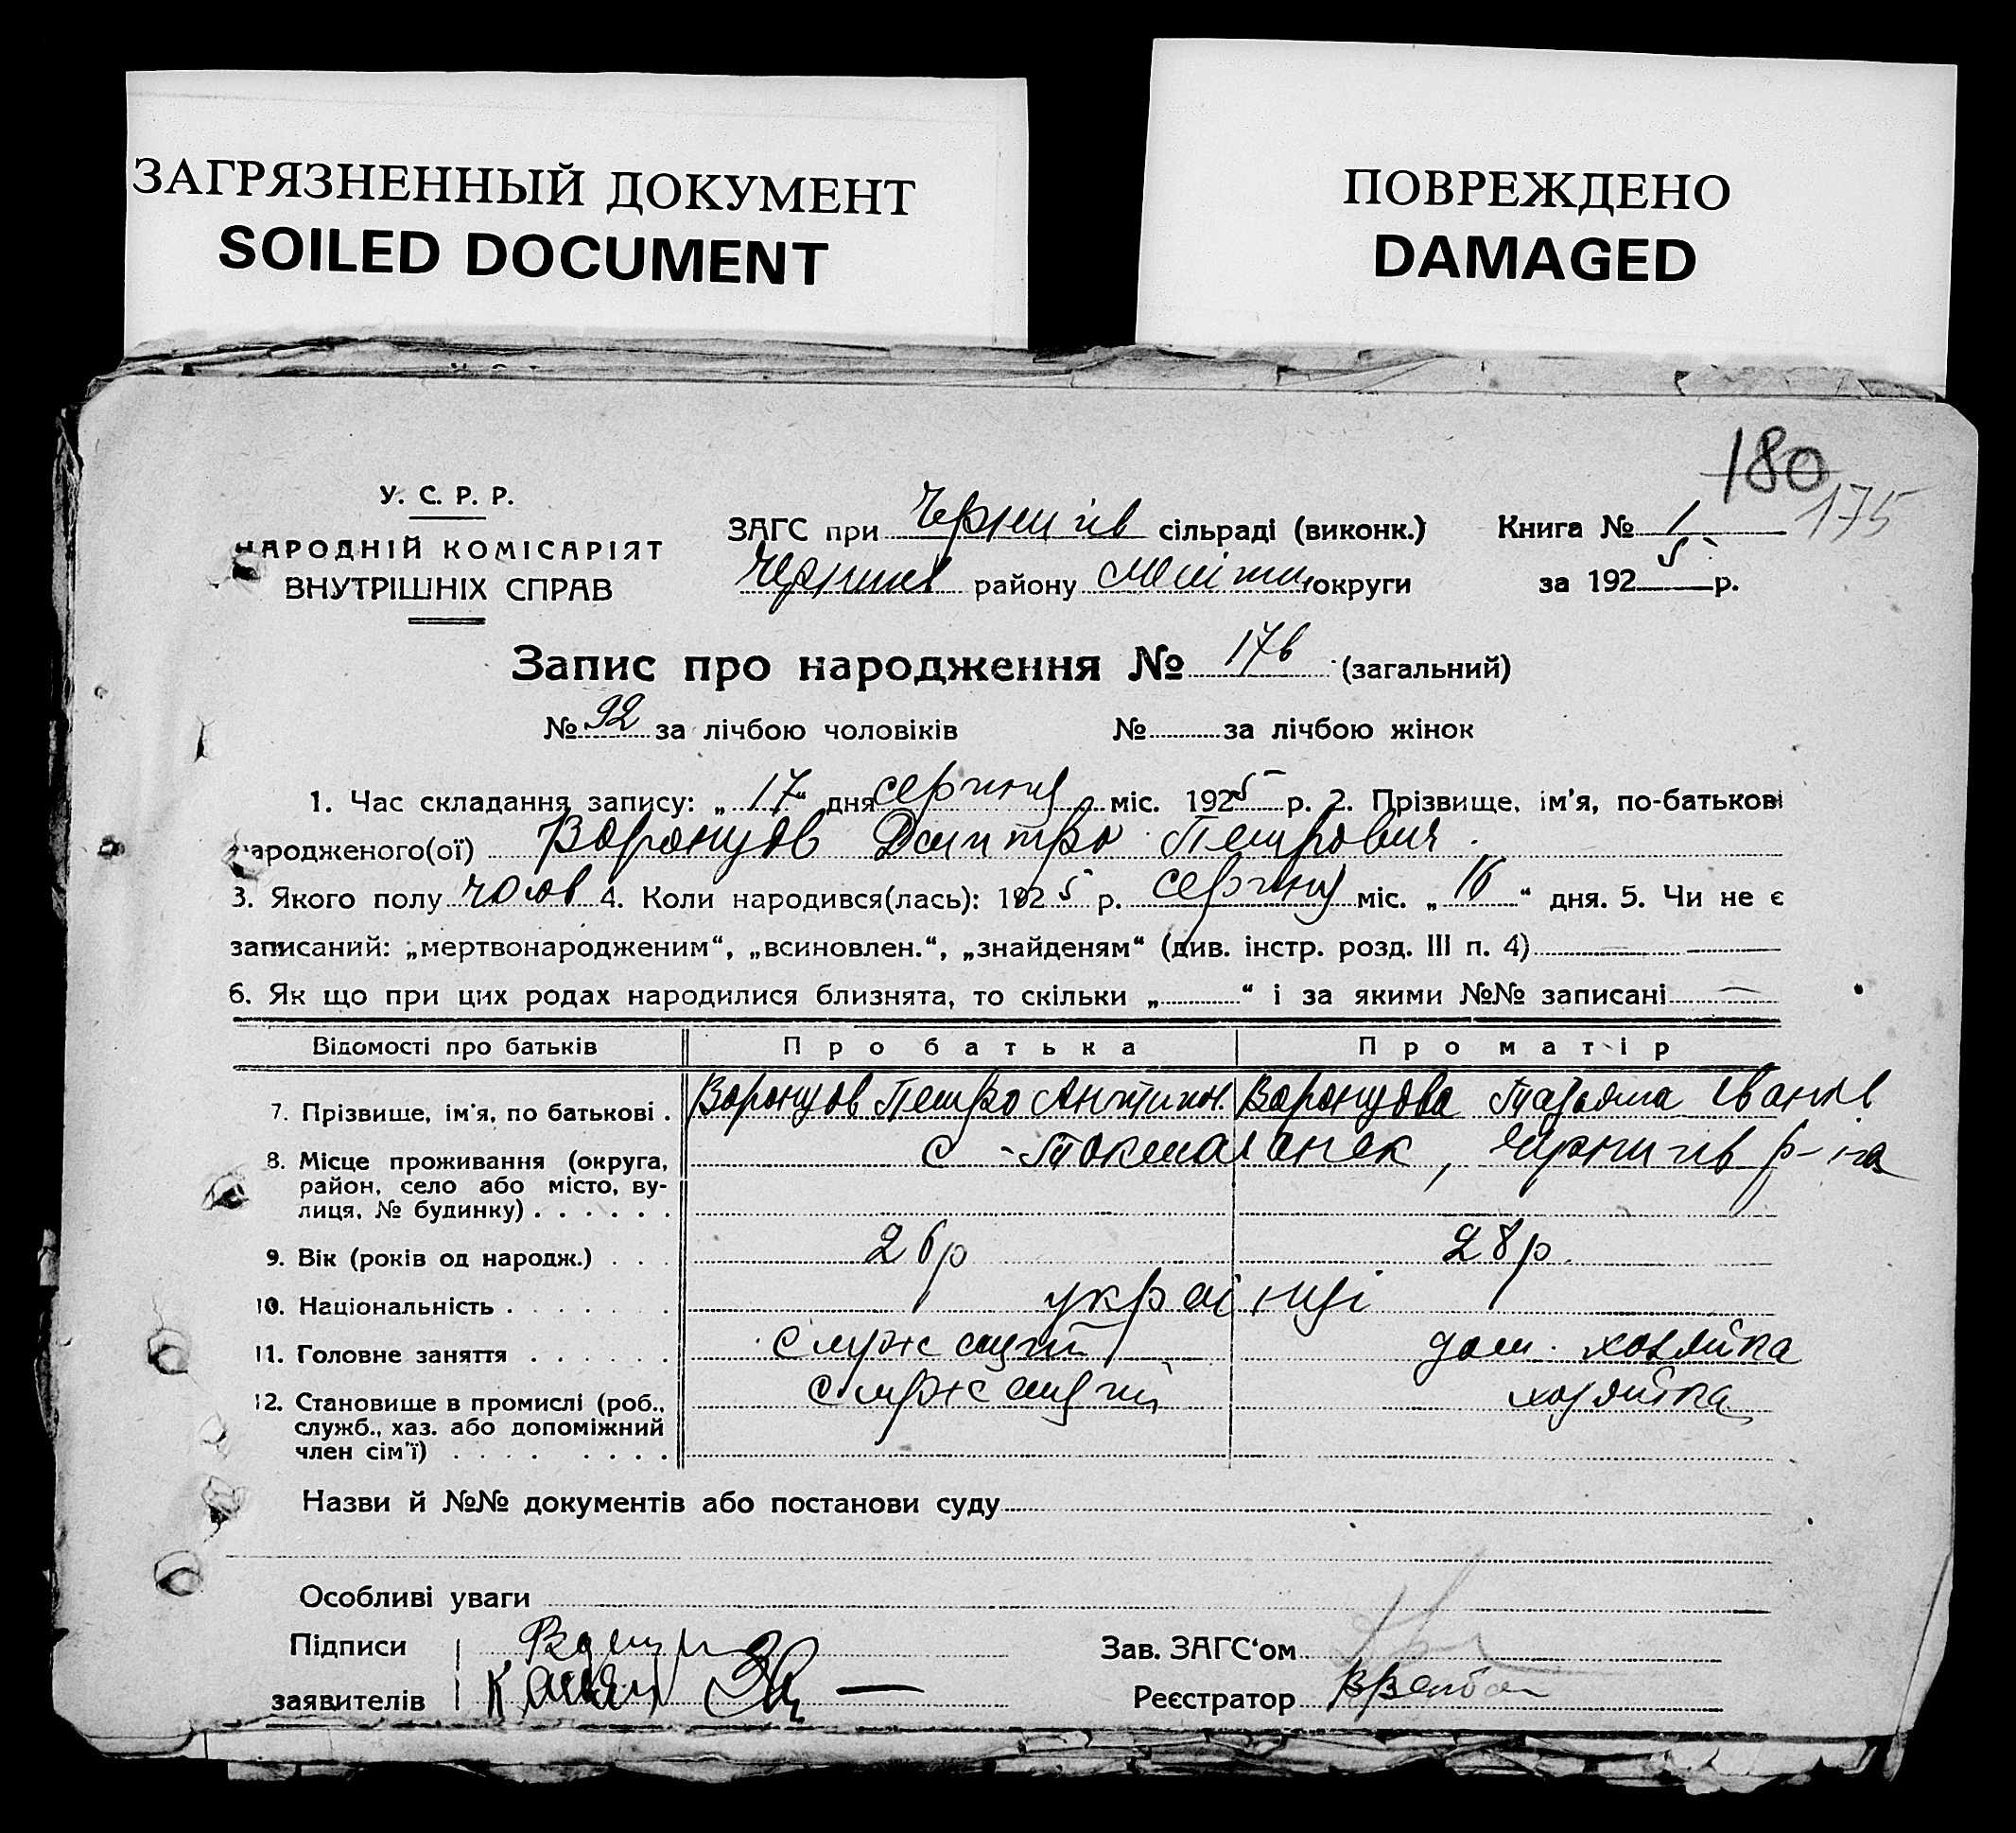 ЗАГРЯЗНЕННЫЙ ДОКУМЕНТ
SOILED DOCUMENT
ПОВРЕЖДЕНО
DAMAGED
180
175
У. С. Р. Р.
НАРОДНІЙ КОМІСАРІЯТ
ВНУТРІШНІХ СПРАВ
ЗАГС при Чернигів сільраді (виконк.) Книга № 1
Черниг району Меліт округи за 1925 р.
Запис про народження № 176 (загальний)
№ 92 за лічбою чоловіків № за лічбою жінок
1. Час складання запису: „ 17 “ дня серпня міс. 1925 р. 2. Прізвище, ім'я, по-батькові
народженого(ої) Воронцов Дмитро Петрович.
3. Якого полу чолов 4. Коли народився(лась): 1925 р. серпня міс. „ 16 “ дня. 5. Чи не є
записаний: „мертвонародженим“, „всиновлен.“, „знайденям“ (див. інстр. розд. III п. 4) —
6. Як що при цих родах народилися близнята, то скільки „ “ і за якими №№ записані —
Відомості про батьків Про батька Про матір
7. Прізвище, ім'я, по батькові . Воронцов Петро Антипн. Воронцова Татьяна Іванів
8. Місце проживання (округа, с-Токмачанск, Чернигів р-на
район, село або місто, ву-
лиця, № будинку) . . . . . .
9. Вік (років од народж.) . . . 26 р 28 р.
10. Національність . . . . . . українці
11. Головне заняття . . . . . . служащий дом. хозяйка
12. Становище в промислі (роб., служащий хозяйка
служб., хаз. або допоміжний
член сім'ї) . . . . . . . .
Назви й №№ документів або постанови суду
Особливі уваги
Підписи Зав. ЗАГС‘ом
заявителів Реєстратор